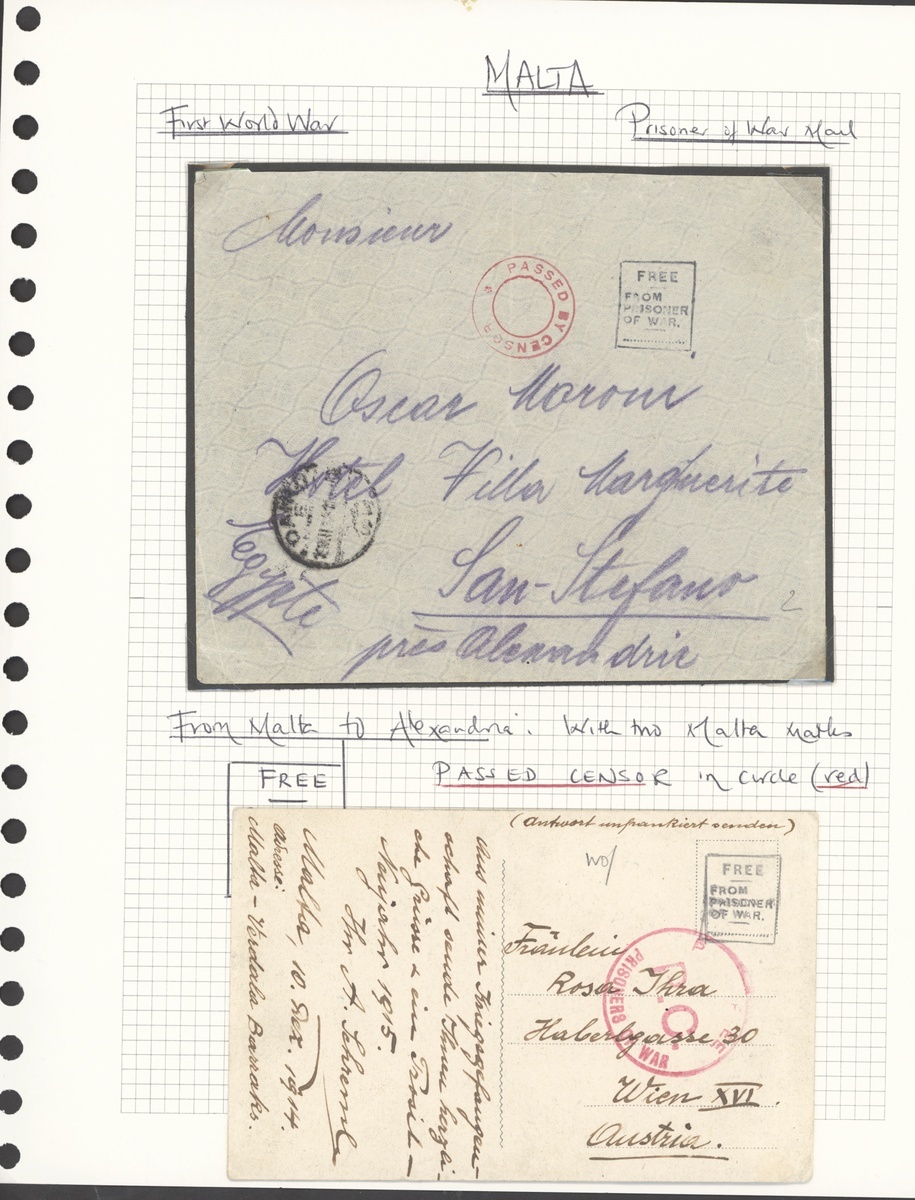 MALTA
First World War
Prisoner of War Mail
Monsieur
PASSED BY CENSOR
FREE
FROM
PRISONER
OF WAR.
Oscar
Hotel Villa Marguerite
San-Stefano
près Alexandrie
Egypte
2
From Malta to Alexandria. With two Malta marks
PASSED CENSOR in circle (red)
FREE
(Antwort unfrankiert senden)
wo/
FREE
FROM
PRISONER
OF WAR.
Fräulein
Rosa Thra
Haberlgasse 30
Wien XVI.
Austria.
PRISONERS OF WAR
Aus meiner Kriegsgefangen-
schaft sende Ihnen herzli-
che Grüsse & ein Prosit
Neujahr 1915.
Ihr A.
Malta, 10. Dez. 1914.
Adresse:
Malta - Verdala Barraks.